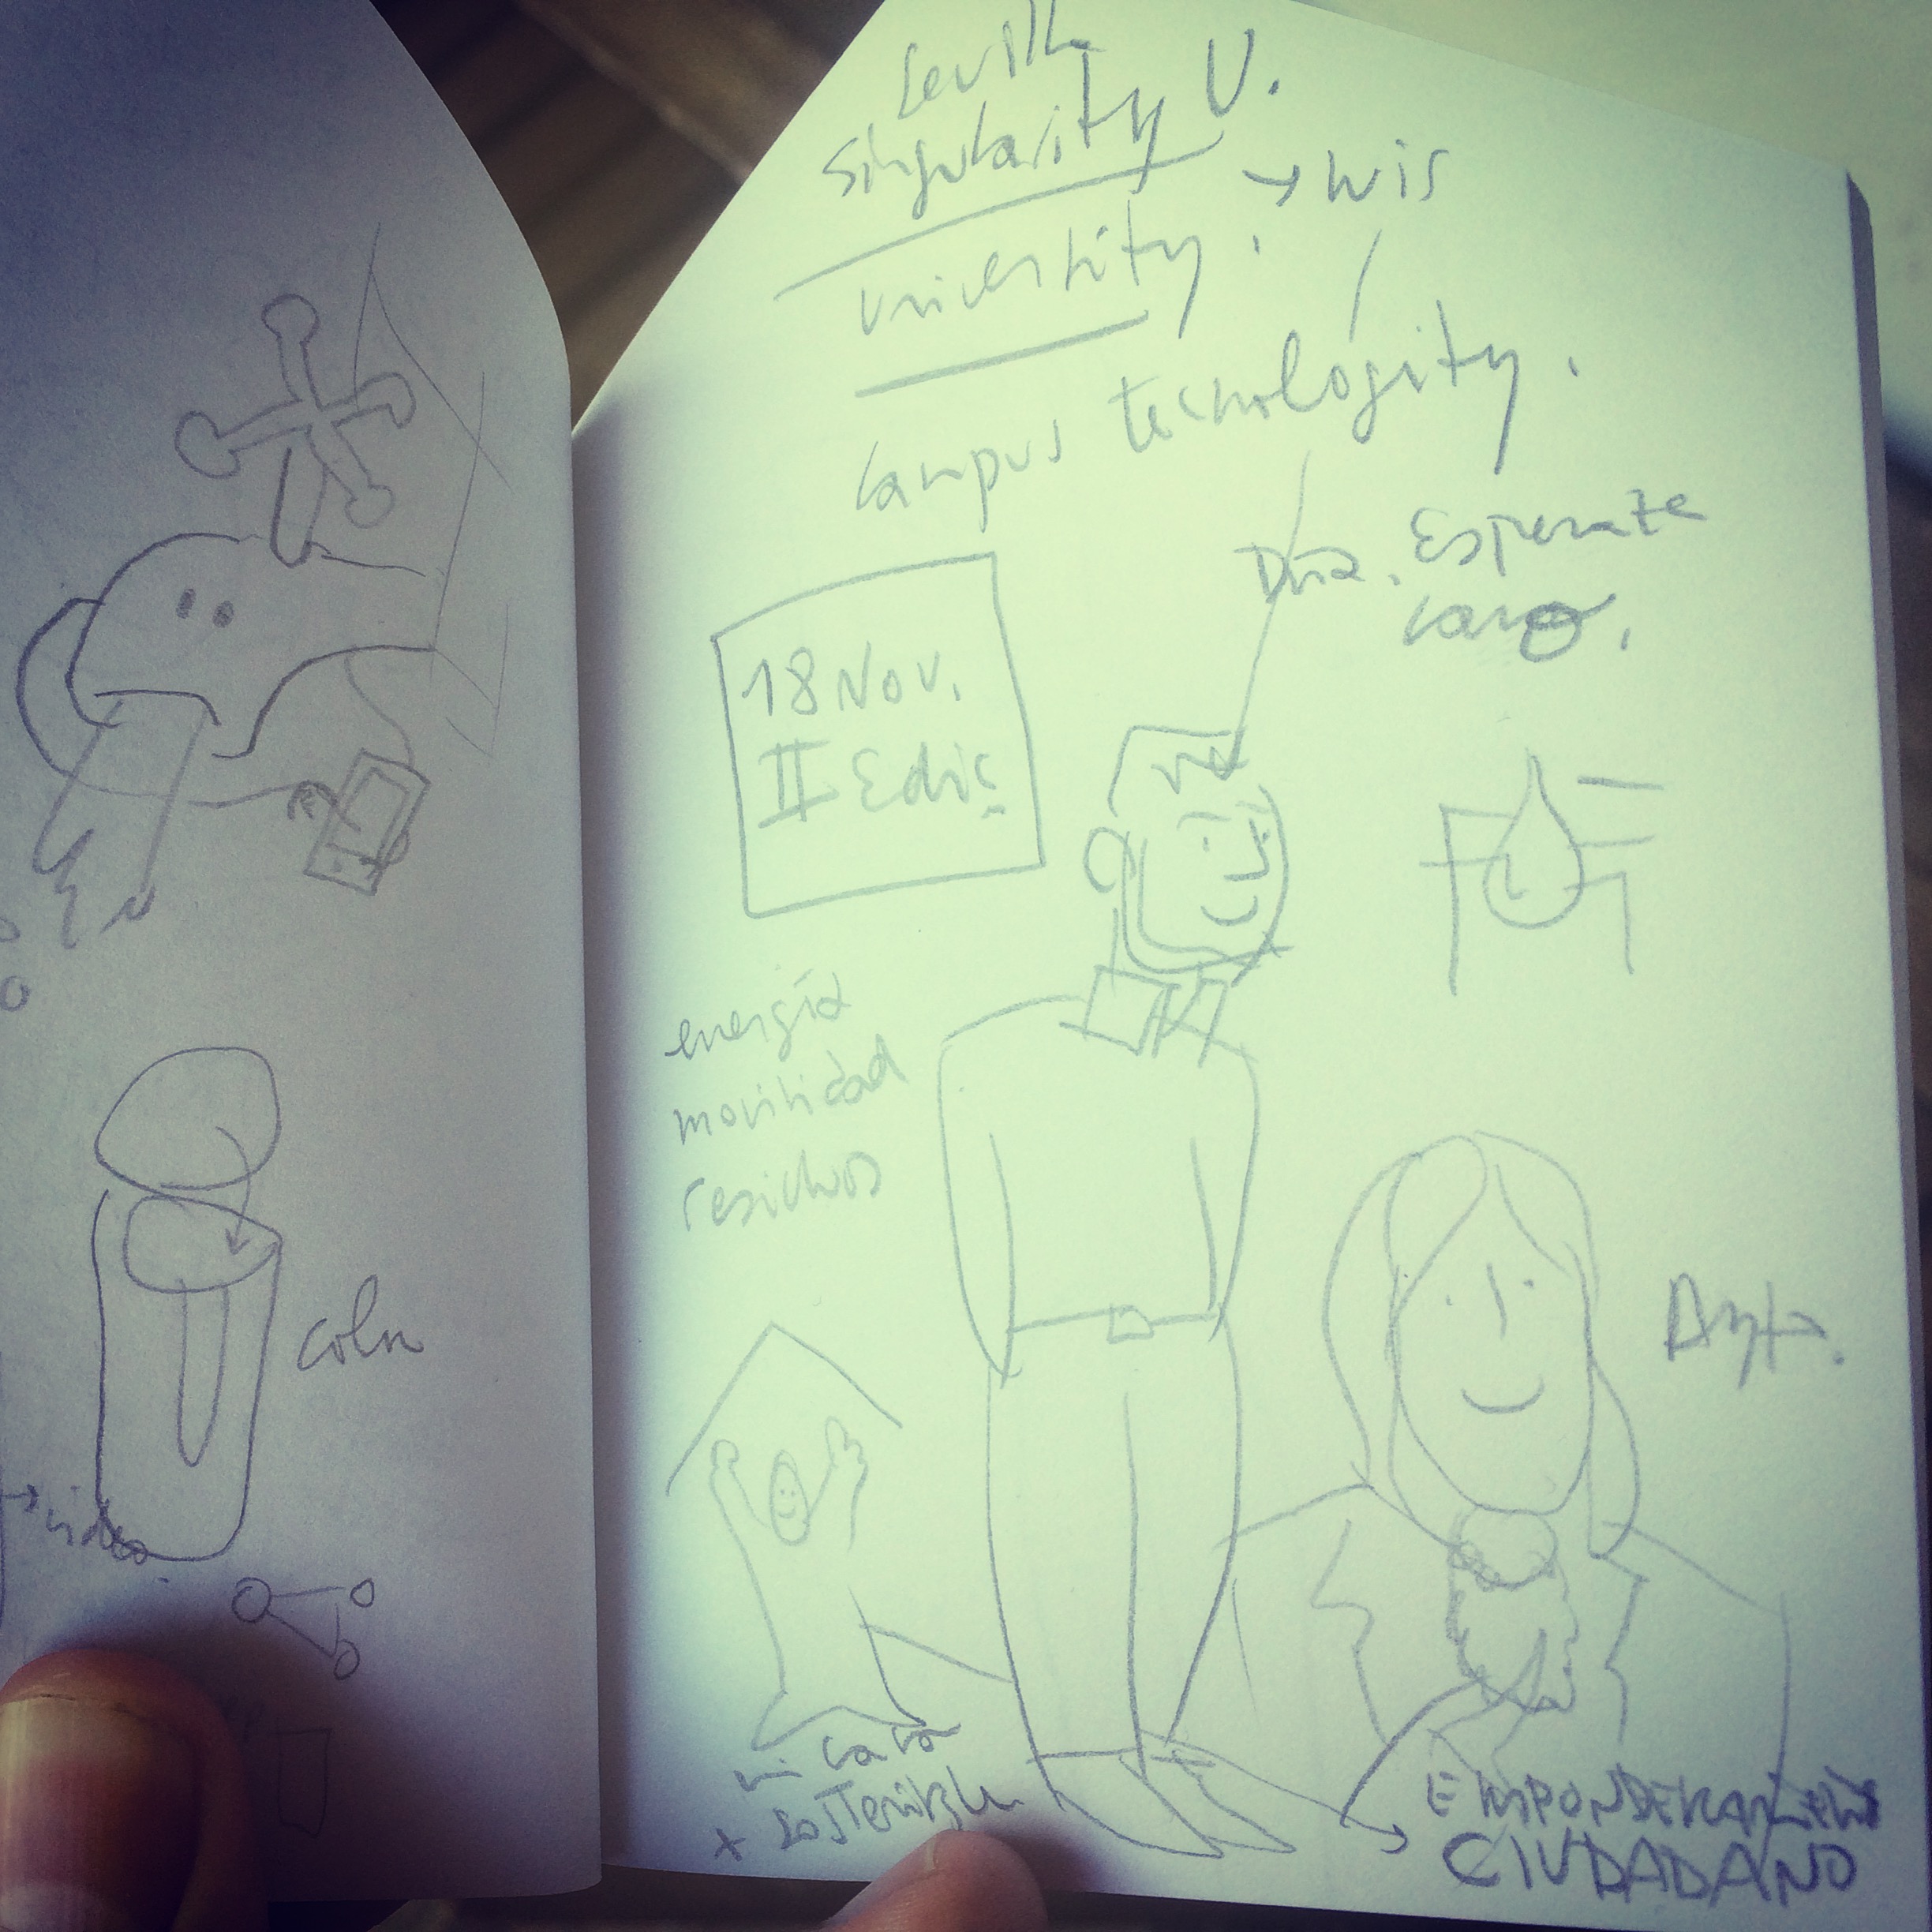 Sevilla
Singularity U.
university. → wis
campus tecnologity.
Dña. Esperanza
caro.
18 Nov.
II Edic
energía
movilidad
residuos
Ayto.
mi casa
x sostenible
CIUDADANO
cola
→ video